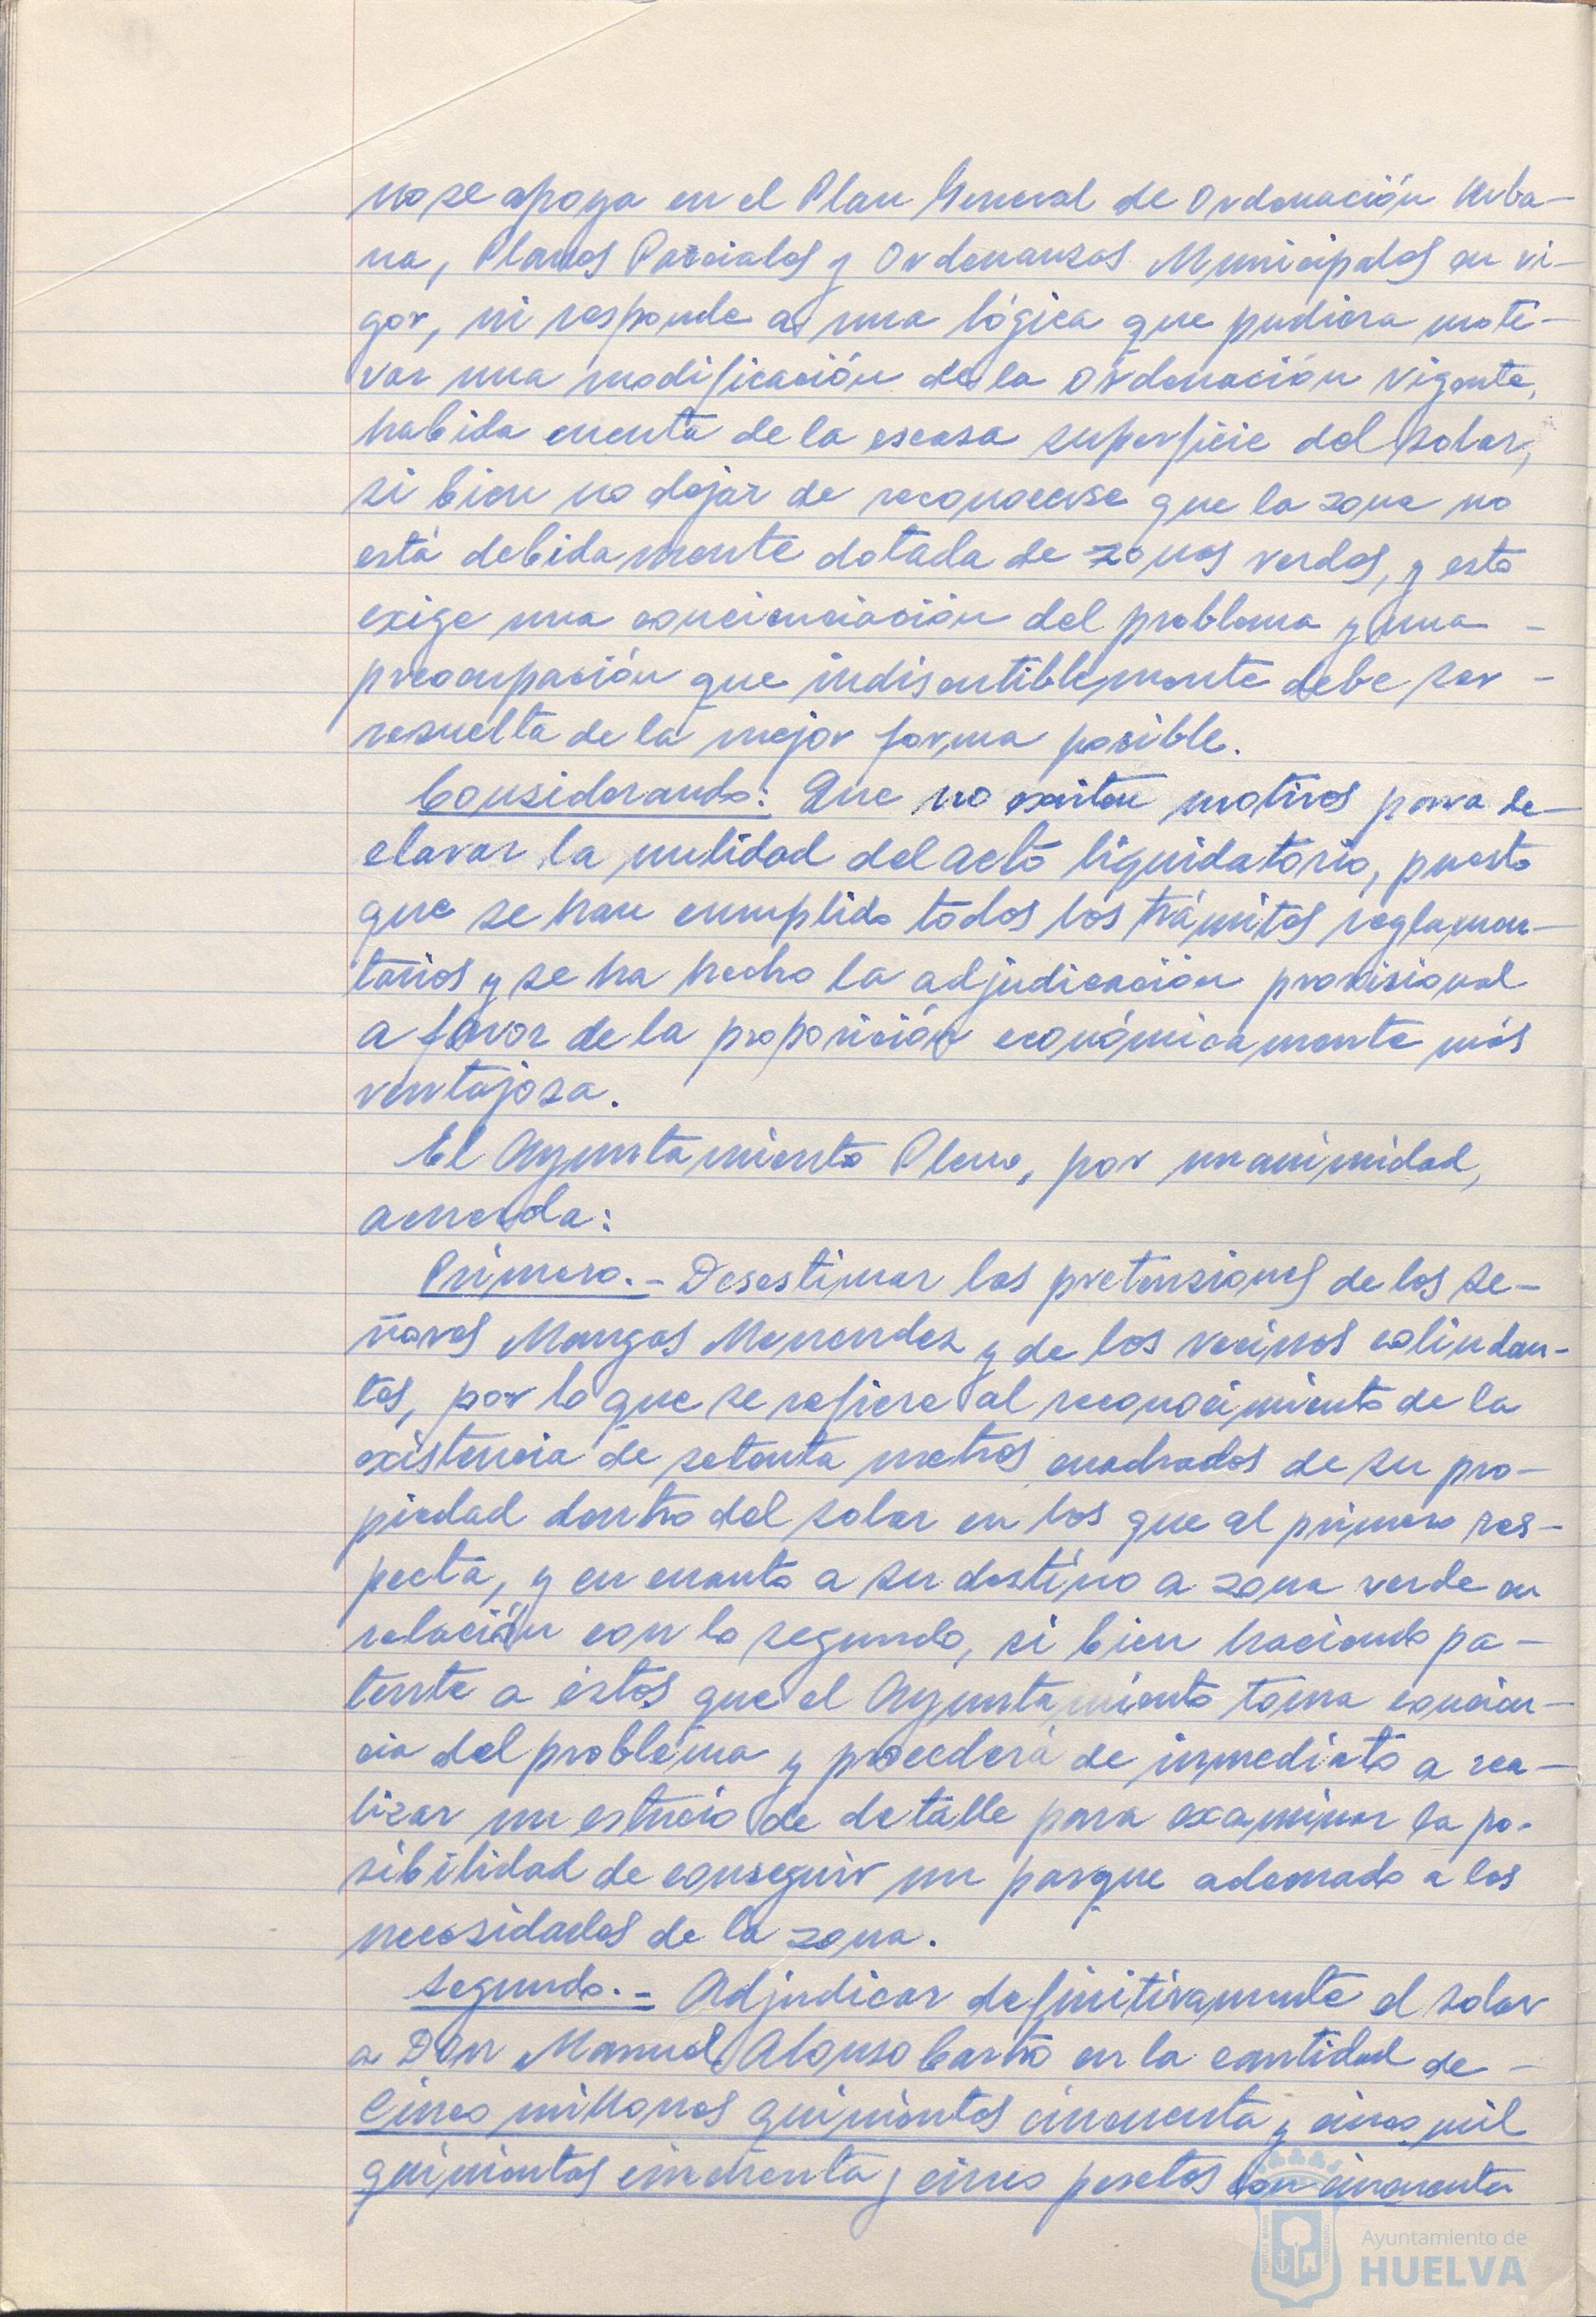 no se apoya en el Plan General de Ordenación Urba-
na, Planos Parciales y Ordenanzas Municipales en vi-
gor, ni responde a una lógica que pudiera moti-
var una modificación de la Ordenación vigente,
habida cuenta de la escasa superficie del solar,
si bien no dejar de reconocerse que la zona no
está debidamente dotada de zonas verdes, y esto
exige una concienciación del problema y una -
preocupación que indiscutiblemente debe ser -
resuelta de la mejor forma posible.
Considerando: Que no existen motivos para de-
clarar la nulidad del acto liquidatorio, puesto
que se han cumplido todos los trámites reglamen-
tarios y se ha hecho la adjudicación provisional
a favor de la proposición económicamente más
ventajosa.
El Ayuntamiento Pleno, por unanimidad,
acuerda:
Primero.- Desestimar las pretensiones de los se-
ñores Mangas Menendez y de los vecinos colindan-
tes, por lo que se refiere al reconocimiento de la
existencia de setenta metros cuadrados de su pro-
piedad dentro del solar en los que al primero res-
pecta, y en cuanto a su destino a zona verde en
relación con lo segundo, si bien haciendo pa-
tente a éstos que el Ayuntamiento toma concien-
cia del problema y procederá de inmediato a rea-
lizar un estucio de detalle para examinar la po-
sibilidad de conseguir un parque adecuado a las
necesidades de la zona.
Segundo.- Adjudicar definitivamente el solar
a Don Manuel Alonso Castro en la cantidad de -
Cinco millones quinientos cincuenta y cinco mil
quinientas cincuenta y cinco pesetas con cincuenta
Ayuntamiento de
HUELVA